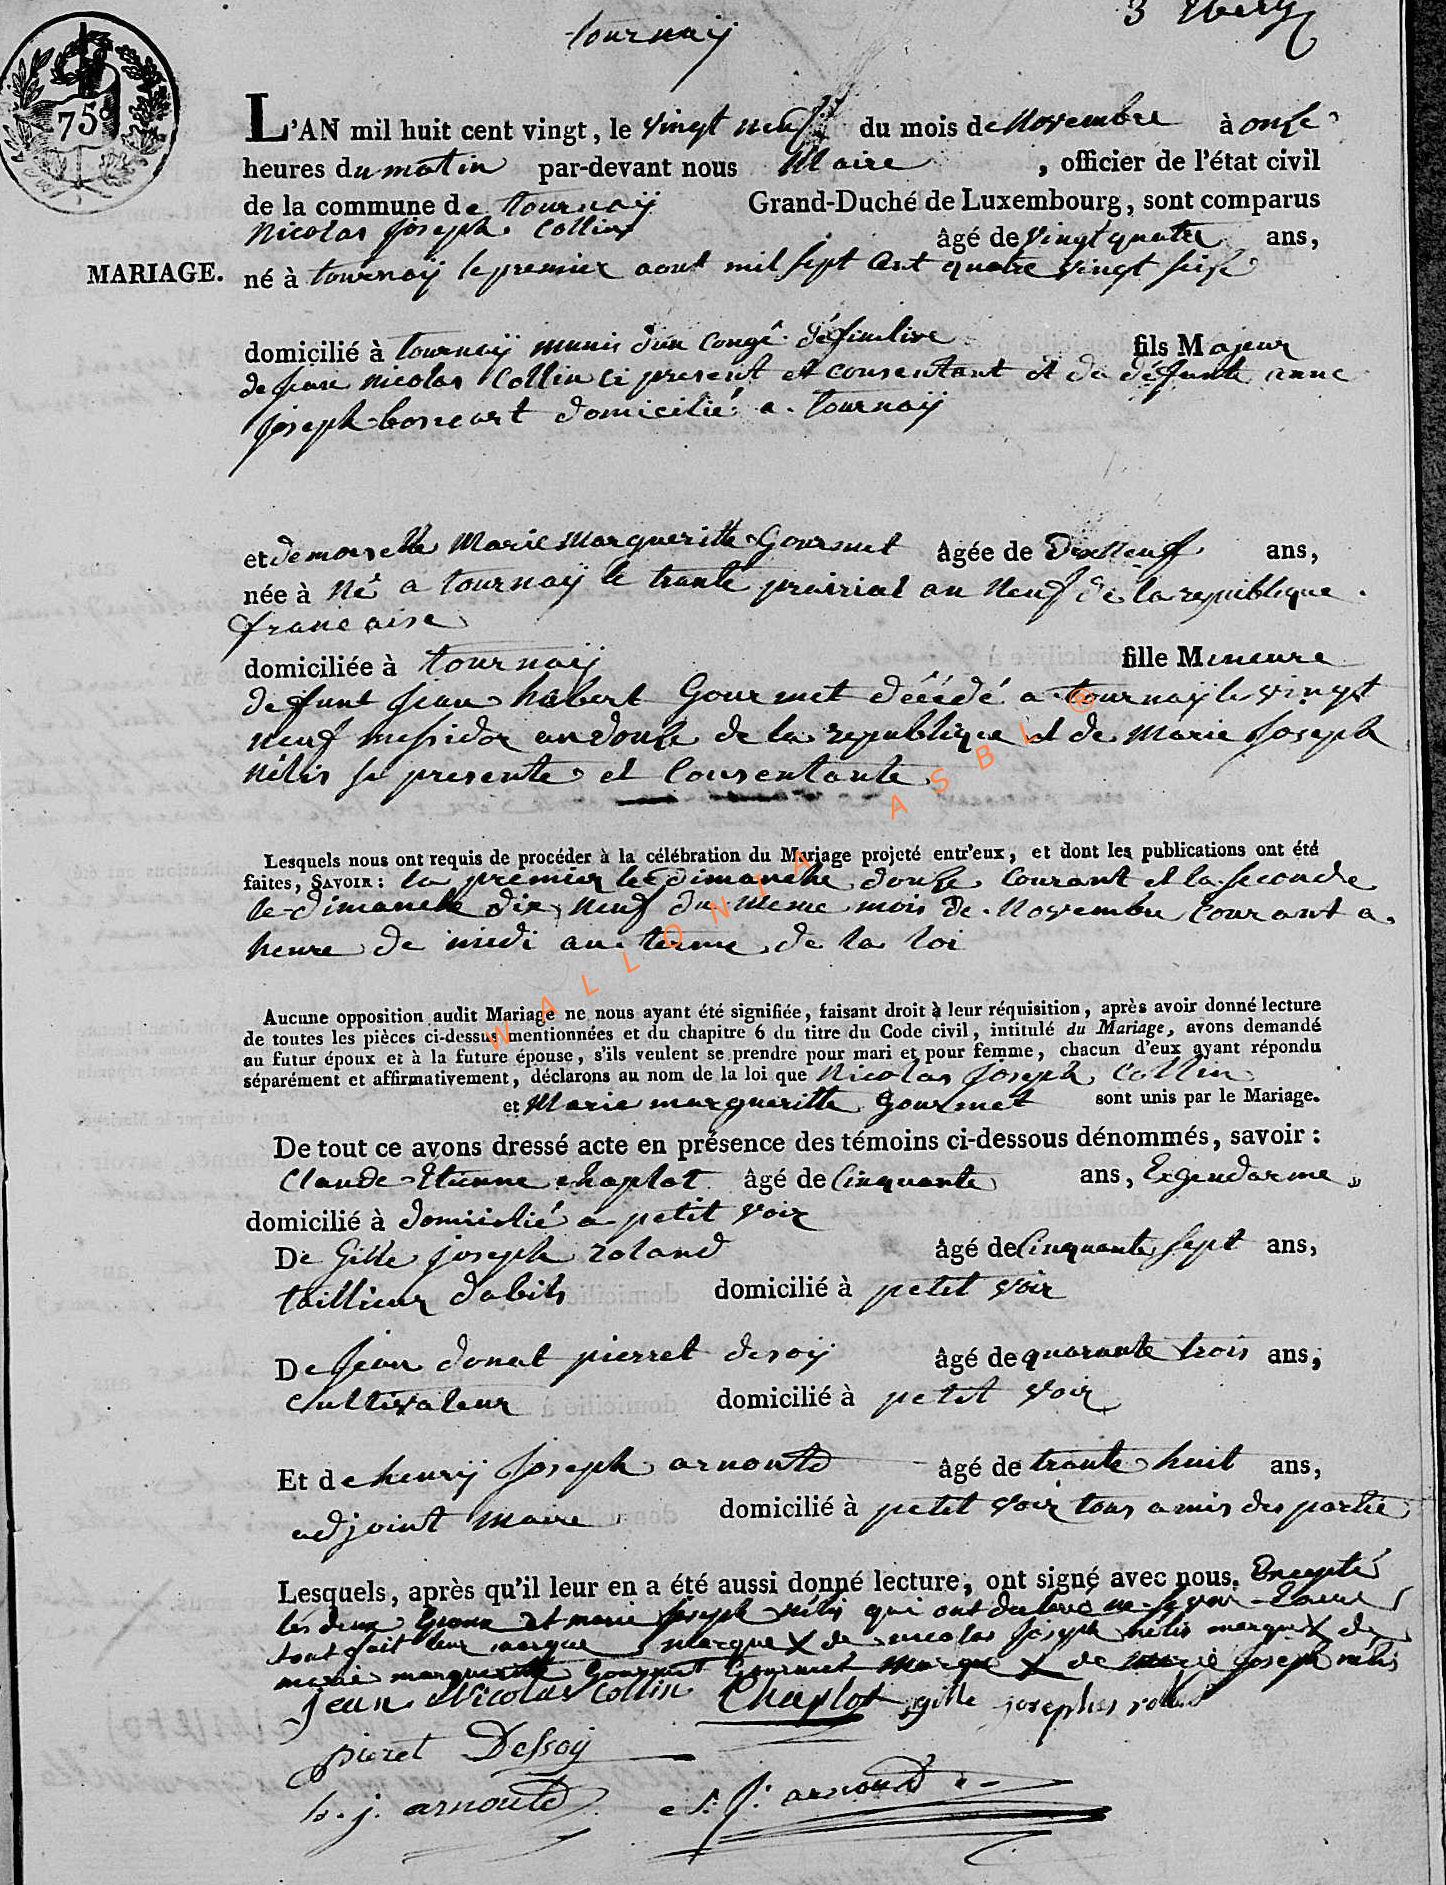 tournaÿ
75
L'AN mil huit cent vingt, le vingt neuf du mois de Novembre à onze
heures du matin par-devant nous Maire , officier de l'état civil
de la commune de tournaÿ Grand-Duché de Luxembourg, sont comparus
Nicolas Joseph Collin âgé de vingt quatre ans,
MARIAGE.
né à tournaÿ le premier aout mil sept cent quatre vingt seize
domicilié à tournaÿ munis d'un congé définitive fils Majeur
de jean nicolas Collin ci present et consentant et de défunte anne
joseph domicilié a tournaÿ
et demoiselle Marie Margueritte Gourmet âgée de Dixneuf ans,
née à né a tournaÿ le trante prairial an Neuf de la republique
francaise
domiciliée à tournaÿ fille Mineure
defunt jean hubert Gourmet décédé a tournaÿ le vingt
neuf messidor an douze de la republique et de Marie Joseph
Nélis si presente et Consentante
Lesquels nous ont requis de procéder à la célébration du Mariage projeté entr'eux, et dont les publications ont été
faites, SAVOIR : la premier le dimanche douze Courant et la seconde
le dimanche dix neuf du meme mois de Novembre Courant a
heure de midi au terme de la loi
Aucune opposition audit Mariage ne nous ayant été signifiée, faisant droit à leur réquisition, après avoir donné lecture
de toutes les pièces ci-dessus mentionnées et du chapitre 6 du titre du Code civil, intitulé du Mariage, avons demandé
au futur époux et à la future épouse, s'ils veulent se prendre pour mari et pour femme, chacun d'eux ayant répondu
séparément et affirmativement, déclarons au nom de la loi que Nicolas Joseph Collin
et Marie margueritte Gourmet sont unis par le Mariage.
De tout ce avons dressé acte en présence des témoins ci-dessous dénommés, savoir :
Claude Etienne chaplot âgé de Cinquante ans, Exgendarme
domicilié à domicilié a petit voir
De Gille joseph roland âgé de Cinquante sept ans,
taillieur dabits domicilié à petit voir
De jean donat pierret desoiÿ âgé de quarante trois ans,
Cultivateur domicilié à petit voir
Et de henrÿ Joseph arnould âgé de trante huit ans,
adjoint maire domicilié à petit voir tous amis des partie
Lesquels, après qu'il leur en a été aussi donné lecture, ont signé avec nous. Excepté
les deux et marie joseph nélis qui ont declaré ne
tont fait leur marque marque X de nicolas Joseph nélis marque X de
marie marguerite Gourmet Gourmet Marque X de Marie joseph nélis
jean Nicolas Collin Chaplot gille josephes
pieret Dessoÿ
h. j. arnould arnould
WALLONIA ASBL ®